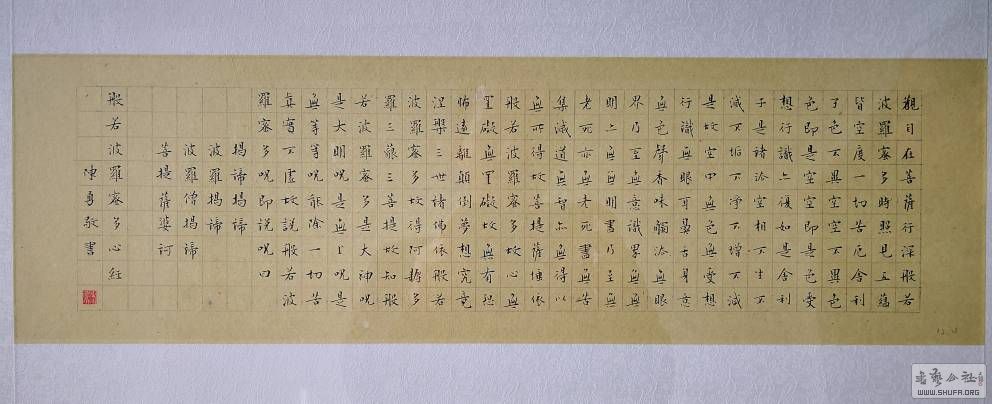 觀自在菩薩行深般若
波羅蜜多時照見五蘊
皆空度一切苦厄舍利
子色不異空空不異色
色即是空空即是色受
想行識亦復如是舍利
子是諸法空相不生不
滅不垢不淨不增不減
是故空中無色無受想
行識無眼耳鼻舌身意
無色聲香味觸法無眼
界乃至無意識界無無
明亦無無明盡乃至無
老死亦無老死盡無苦
集滅道無智亦無得以
無所得故菩提薩埵依
般若波羅蜜多故心無
罣礙無罣礙故無有恐
怖遠離顛倒夢想究竟
涅槃三世諸佛依般若
波羅蜜多故得阿耨多
羅三藐三菩提故知般
若波羅蜜多是大神呪
是大明呪是無上呪是
無等等呪能除一切苦
真實不虛故說般若波
羅蜜多呪即說呪曰
揭諦揭諦
波羅揭諦
波羅僧揭諦
菩提薩婆訶
般若波羅蜜多心經
陳勇敬書
书艺公社
WWW.SHUFA.ORG